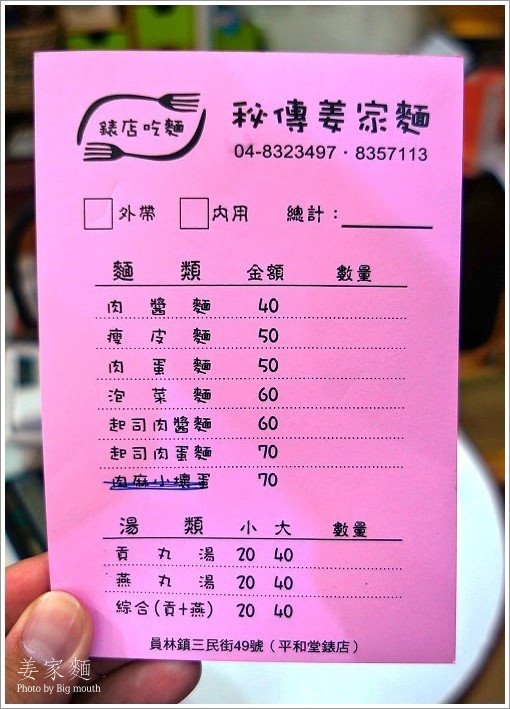 錶店吃麵
秘傳姜家麵
04-8323497．8357113
外帶 內用 總計：
麵類 金額 數量
肉醬麵 40
瘦皮麵 50
肉蛋麵 50
泡菜麵 60
起司肉醬麵 60
起司肉蛋麵 70
肉麻小壞蛋 70
湯類 小 大 數量
貢丸湯 20 40
燕丸湯 20 40
綜合(貢+燕) 20 40
員林鎮三民街49號（平和堂錶店）
姜家麵
Photo by Big mouth